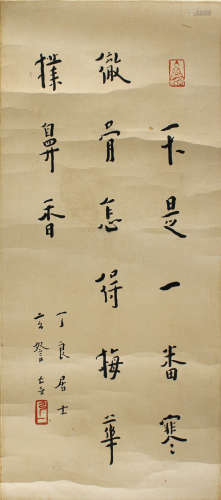 不是一番寒
徹骨怎得梅華
撲鼻香
丁良居士